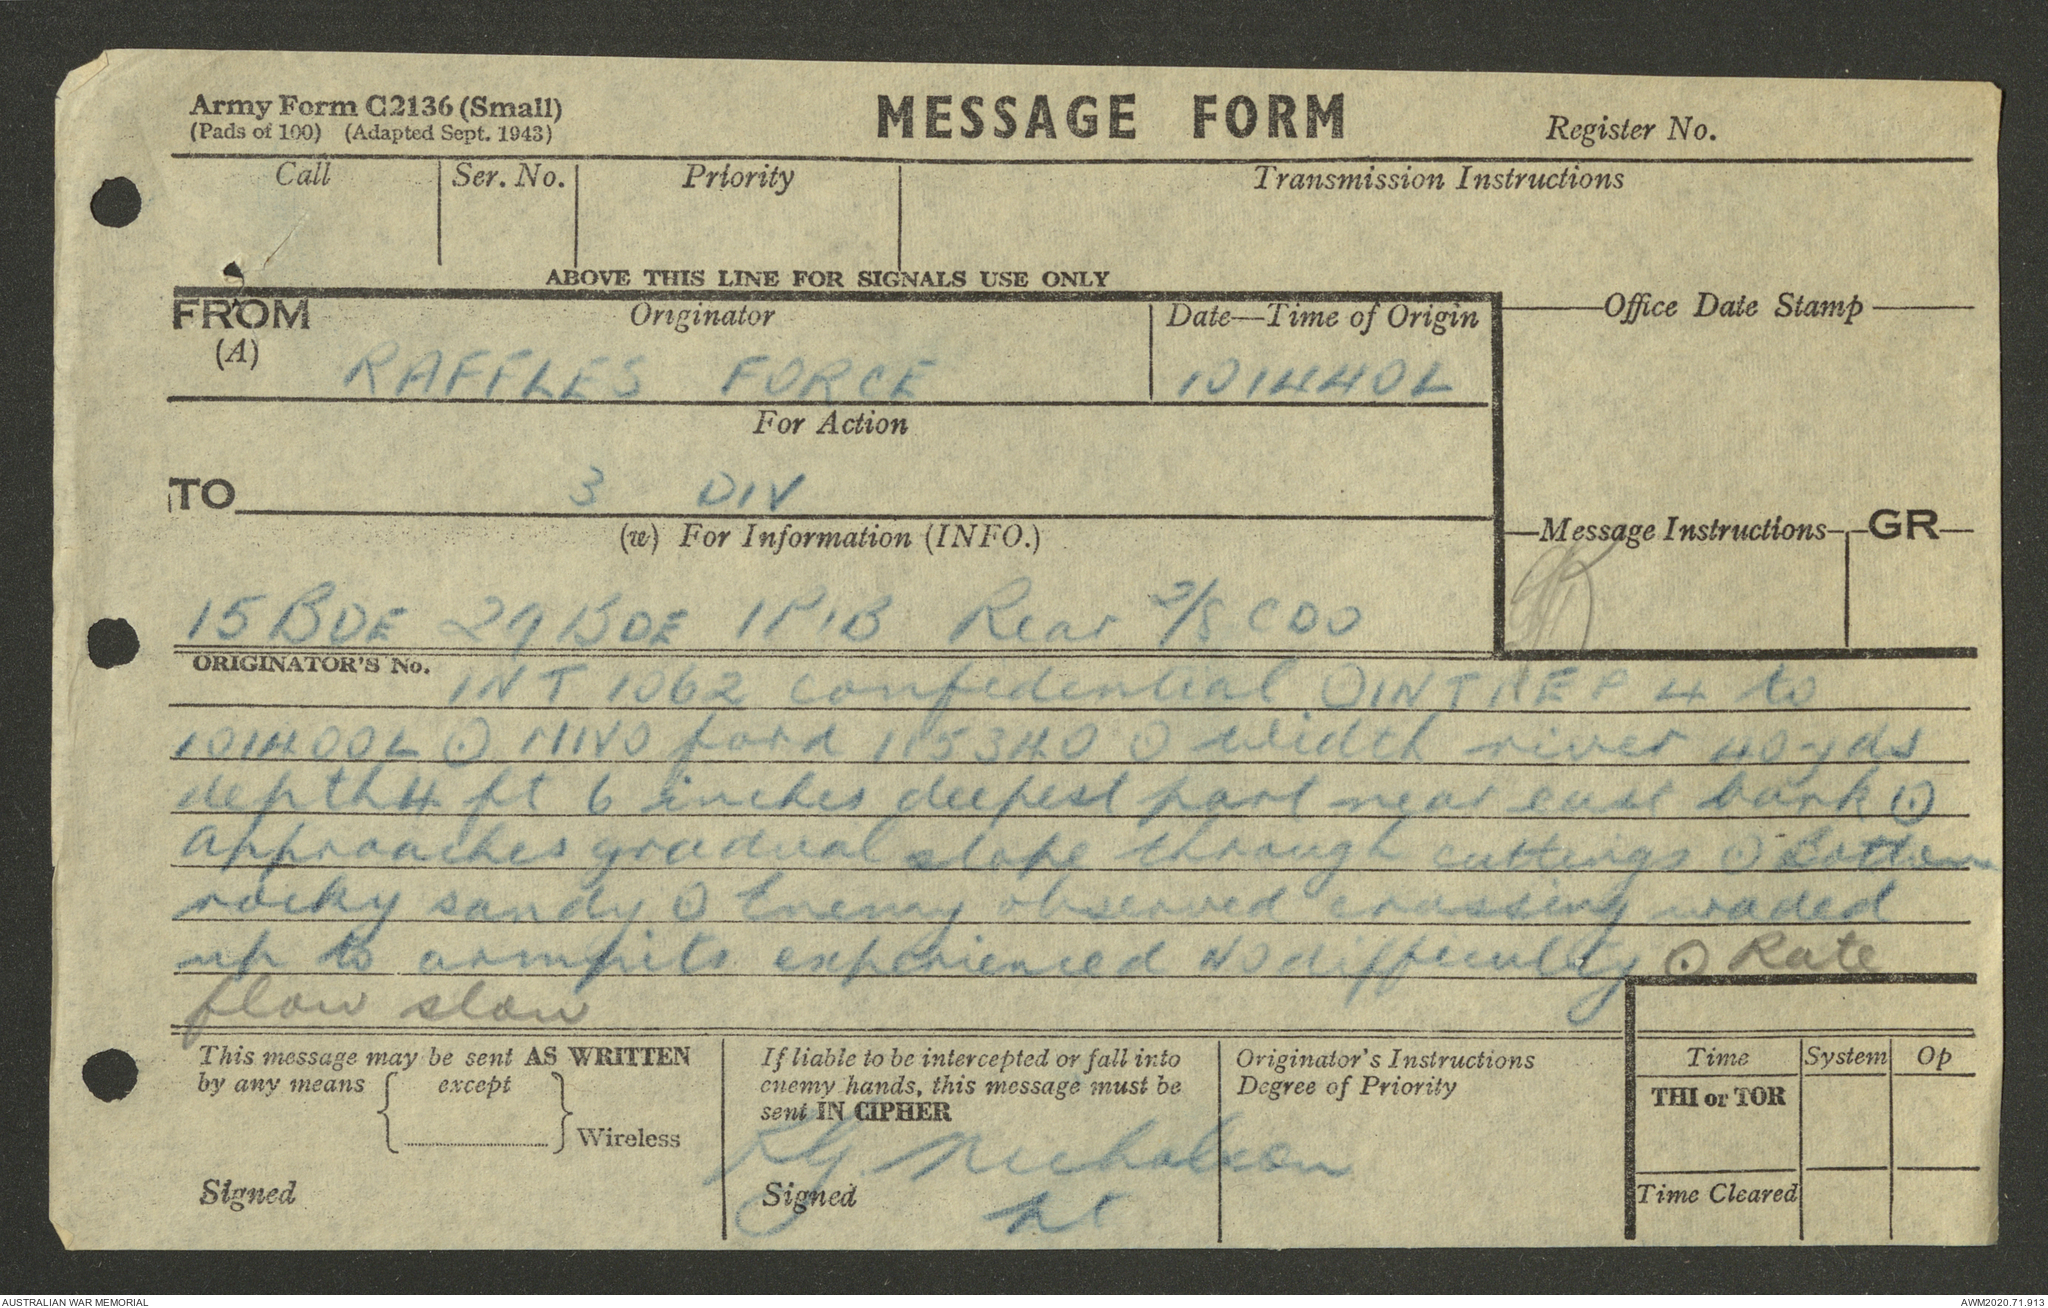 Army Form C2136 (Small)
(Pads of 100) (Adapted Sept. 1943)
MESSAGE FORM
Register No.
Call
Ser. No.
Priority
Transmission Instructions
ABOVE THIS LINE FOR SIGNALS USE ONLY
FROM
(A)
Originator
RAFFLES FORCE
Date—Time of Origin
101440L
Office Date Stamp
For Action
TO
3 DIV
(w) For Information (INFO.)
Message Instructions
GR
15 BDE 29 BDE 1PIB Rear 2/8 CDO
ORIGINATOR'S No.
INT 1062 confidential ⊙ INTREP 4 to
101400L ⊙ MIVO ford 115340 ⊙ width river 40 yds
depth 4 ft 6 inches deepest part near east bank ⊙
approaches gradual slope through cuttings ⊙ Bottom
rocky sandy ⊙ Enemy observed crossing waded
up to armpits experienced NO difficulty ⊙ Rate
flow slow
This message may be sent AS WRITTEN
by any means { except
} Wireless
Signed
If liable to be intercepted or fall into
enemy hands, this message must be
sent IN CIPHER
Nicholson
Signed
Lt
Originator's Instructions
Degree of Priority
Time
System
Op
THI or TOR
Time Cleared
AUSTRALIAN WAR MEMORIAL
AWM2020.71.913